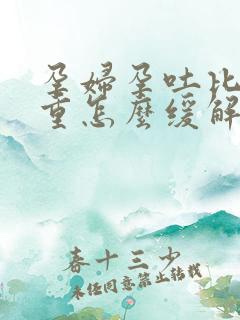 孕婦孕吐比
重怎麼緩解
春十三少
未经同意禁止转载